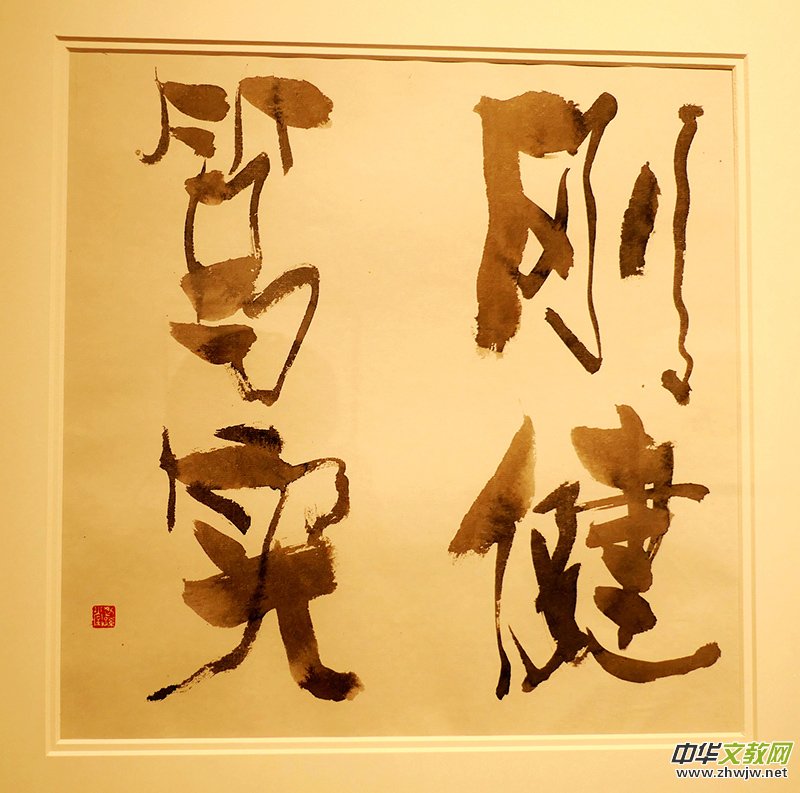 刚健
笃实
中华文教网
www.zhwjw.net